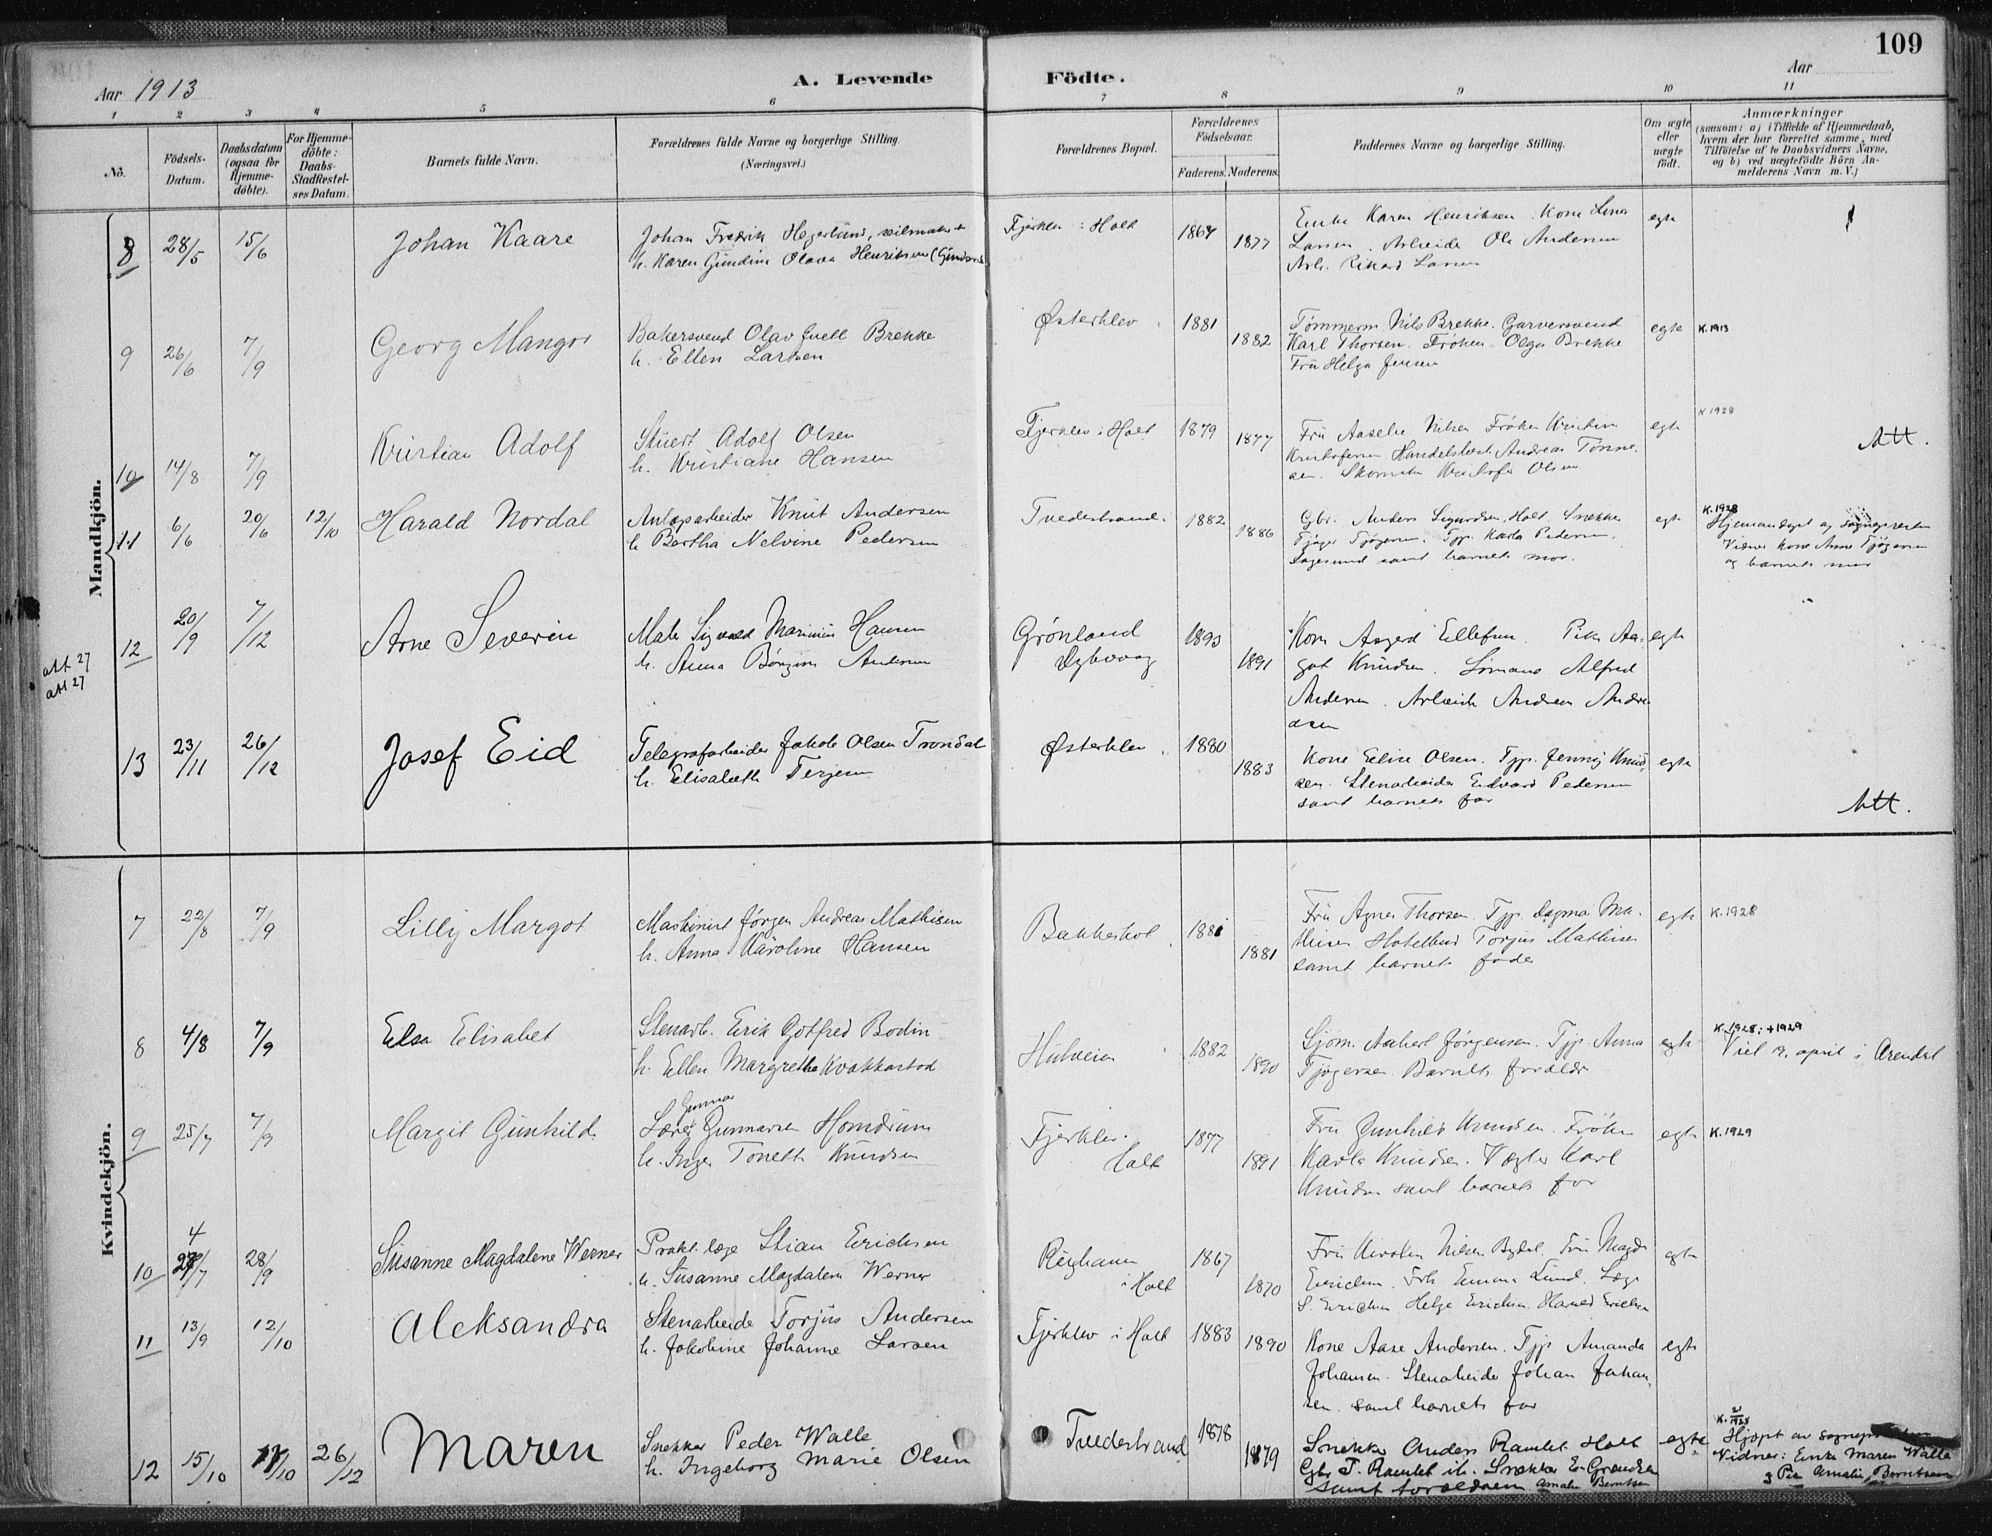 109
Aar 1913
A. Levende Födte.
Aar
1 2 3 4 5 6 7 8 9 10 11
No.
Födsels-Datum.
Daabsdatum (ogsaa for Hjemme-döbte).
For Hjemme-döbte: Daabs-Stadfæstel-ses Datum.
Barnets fulde Navn.
Forældrenes fulde Navne og borgerlige Stilling. (Næringsvei.)
Forældrenes Bopæl.
Forældrenes Födselsaar.
Faderens. Moderens.
Faddernes Navne og borgerlige Stilling.
Om ægte eller uægte födt.
Anmærkninger
(saasom: a) i Tilfælde af Hjemmedaab, hvem der har forrettet samme, med Tilföielse af to Daabsvidners Navne, og b) ved uægtefödte Börn An-melderens Navn m. V.)
Mandkjön.
8 28/5 15/6 Johan Kaare
Johan Fredrik Hegerlund,
h. Karen Gundine Olava Henriksen
Fjerklev i Holt 1864 1877
Enke Karen Henriksen. Kone Lina
Larsen. Arbeider Ole Andersen
Arb. Rikard Larsen
egte
9 26/6 7/9 Georg Mangor
Bakersvend Olav Brekke
h. Ellen Larsen
Østerklev 1881 1882
Tømmerm. Nils Brekke. Garversvend
Karl Thorsen. Frøken Olga Brekke
Fru Helga Jensen
egte K. 1913
10 14/8 7/9 Kristian Adolf
Stuert Adolf Olsen
h. Kristiane Hansen
Fjerklev i Holt 1879 1877
Fru Aaselie Nilsen Frøken Kristine
Kristofersen Andreas Tønne-
sen. Skomaker Kristofer Olsen
egte K 1928
Att.
11 6/6 20/6 12/10 Harald Nordal
Anlægsarbeider Knut Andersen
h Bertha Nelvine Pedersen
Tvedestrand. 1882 1886
Gbr. Anders Sigurdsen, Holt Snekker
Tjøger Tjøgersen. Tjp. Karla Pedersen,
samt barnets mor.
egte K. 1928
Hjemmedøpt av sognepresten
Vidner Kone Anne Tjøgersen
og barnets mor
12 20/9 7/12 Arne Severin
Mate Sigvald Marinius Hansen
h. Anna Andersen
Grönland
Dybvaag
1890 1891
Kone Asgerd Ellefsen. Pike Aa-
got Knudsen. Sømand Alfred
Andersen. Arbeider Andreas Andre-
asen
egte
att 27
att 27
13 23/11 26/12 Josef Eid
Telegrafarbeider Jakob Olsen Trondal
h. Elisabeth Terjesen
Østerklev 1880 1883
Kone Eline Olsen. Tjp. Jenny Knud-
sen. Stenarbeider Edvard Pedersen
samt barnets far
egte
Att.
Kvindekjön.
7 22/8 7/9 Lilly Margot
Maskinist Jørgen Andreas Mathisen
h. Anna Karoline Hansen
Bakkeskot 1881 1881
Fru Agnes Thorsen. Tjp. Dagma Ma-
thisen Hotelbud Torjus Mathisen
samt barnets fader
egte K. 1928
8 4/8 7/9 Elsa Elisabet
Stenarb. Erik Gotfred Bodin
h. Ellen Margrethe Kvakkestad
Hulveien 1882 1890
Sjøm. Jørgensen. Tjp. Anna
Tjøgersen. Barnets forældre
egte K. 1928: + 1929
Viet 9. april i Arendal
9 25/7 7/9 Margit Gunhild
Gunnar
Lærer Gunnarsen Homdrum
h. Inger Tonette Knudsen
Fjerklev.
Holt
1877 1891
Fru Gunhild Knudsen. Frøken
Karla Knudsen. Vægter Karl
Knudsen samt barnets far
egte K. 1929
10 4/7 28/9 Susanne Magdalene Werner
Prakt. læge Stian Erichsen
h. Susanne Magdalene Werner
i Holt
1867 1870
Fru Kirsten Nilsen Fru Magda
Erichsen. Frk Emma Lund. Læge
S. Erichsen Helge Erichsen Harald Erichsen
egte
11 13/9 12/10 Aleksandra
Stenarbeider Torjus Andersen
h. Jakobine Johanne Larsen
Fjerklev i Holt 1883 1890
Kone Aase Andersen. Tjp Amanda
Johansen. Stenarbeider Johan Johan-
sen. samt barnets far
egte
12 15/10 17/10 26/12 Maren
Snekker Peder Walle
h. Ingeborg Marie Olsen
Tvedestrand 1878 1879
Snekker Anders Ramlet Holt
Gbr T. Ramlet ib. Snekker E. Grandsen
samt forældrene Amalie Berntsen
egte K. 21/1928
Hjdøpt av sognepresten
Vidner: Enke Maren Walle
g Pike Amalie Berntsen